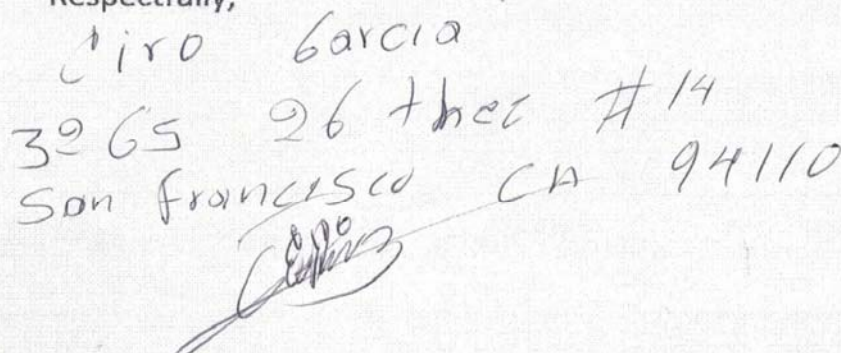 Respectfully,
Ciro Garcia
3265 26 #14
San Francisco CA 94110